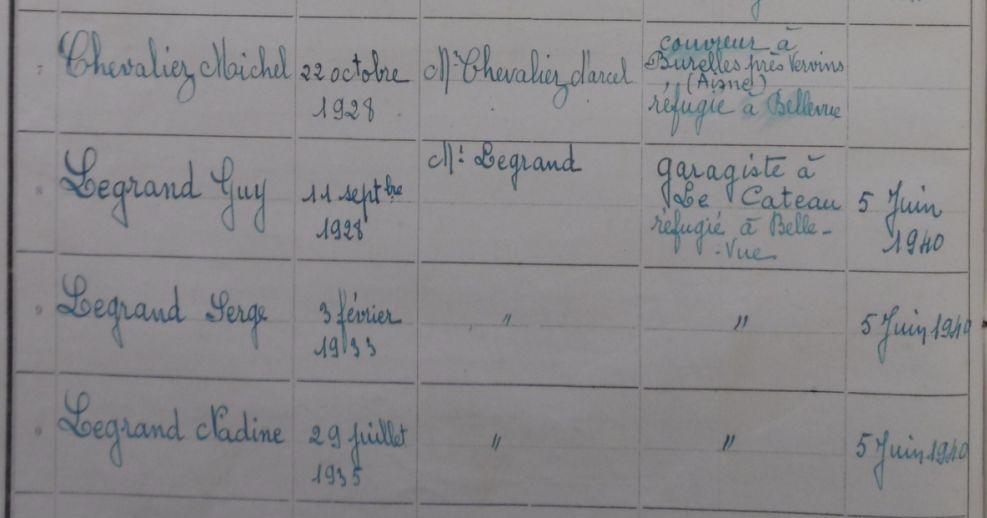 7 Chevaliez Michel 22 octobre 1928 Mr Chevaliez Marcel couvreur à Burelles près Vervins (Aisne) réfugié à Bellevue
8 Legrand Guy 11 septbre 1928 Mr Legrand garagiste à Le Cateau réfugié à Belle-Vue 5 Juin 1940
9 Legrand Serge 3 février 1933 " " 5 Juin 1940
Legrand Nadine 29 juillet 1935 " " 5 Juin 1940